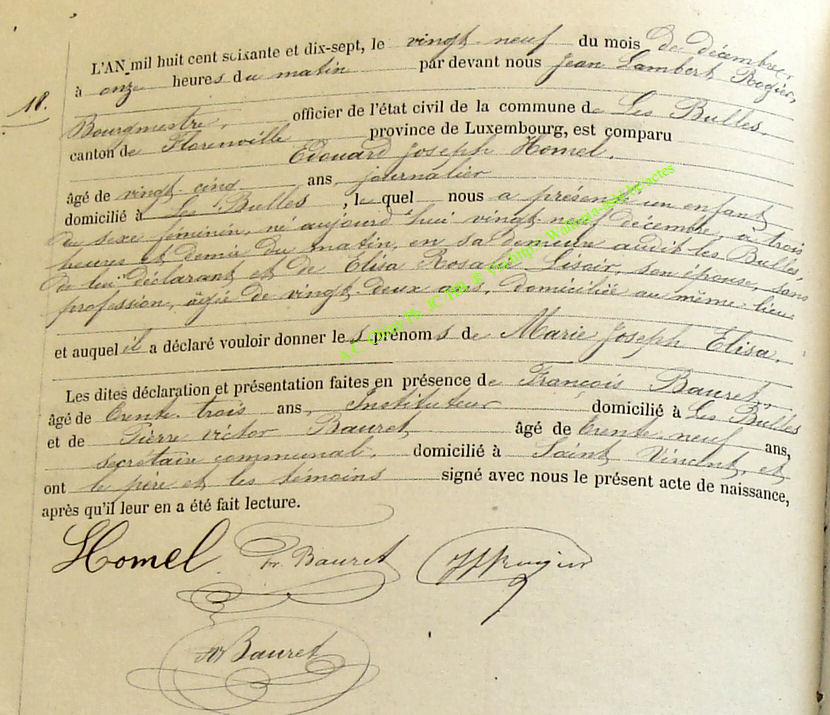 18.
L'AN mil huit cent soixante et dix-sept, le vingt neuf du mois de décembre,
à onze heures du matin par devant nous Jean Lambert Rogier,
Bourgmestre, officier de l'état civil de la commune de Les Bulles
canton de Florenville province de Luxembourg, est comparu
Edouard Joseph Homel,
âgé de vingt cinq ans, journalier
domicilié à Les Bulles, lequel nous a présenté un enfant
du sexe féminin, né aujourd'hui vingt neuf décembre, à trois
heures et demie du matin, en sa demeure audit les Bulles,
de lui déclarant et de Elisa Rosalie son épouse, sans
profession, âgée de vingt-deux ans, domiciliée au même lieu
et auquel il a déclaré vouloir donner les prénoms de Marie Joseph Elisa.
Les dites déclaration et présentation faites en présence de François Bauret,
âgé de trente-trois ans, Instituteur domicilié à Les Bulles
et de Pierre victor Bauret âgé de trente neuf ans,
secrétaire communal, domicilié à Saint Vincent, et
ont le père et les témoins signé avec nous le présent acte de naissance,
après qu'il leur en a été fait lecture.
Homel Fr. Bauret
Bauret